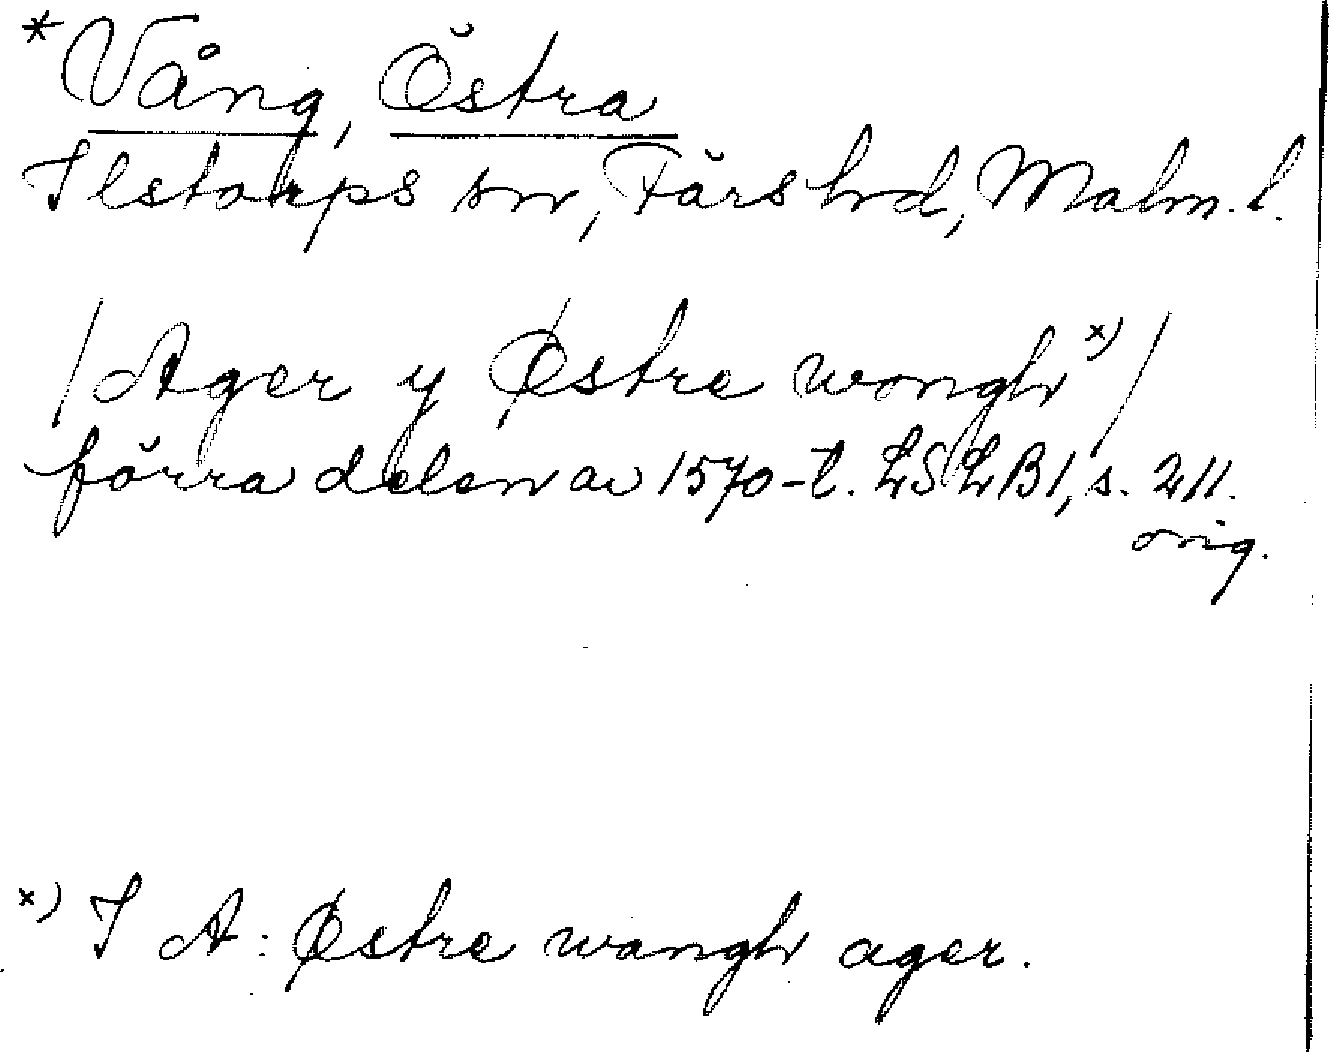 * Vång, Östra
Ilstorps sn, Färs hd, Malm. l.
/Ager y Østre wongh x)/
förra delen av 1570-t. LSLB1, s. 211.
orig.
x) I A: Østre wangh ager.